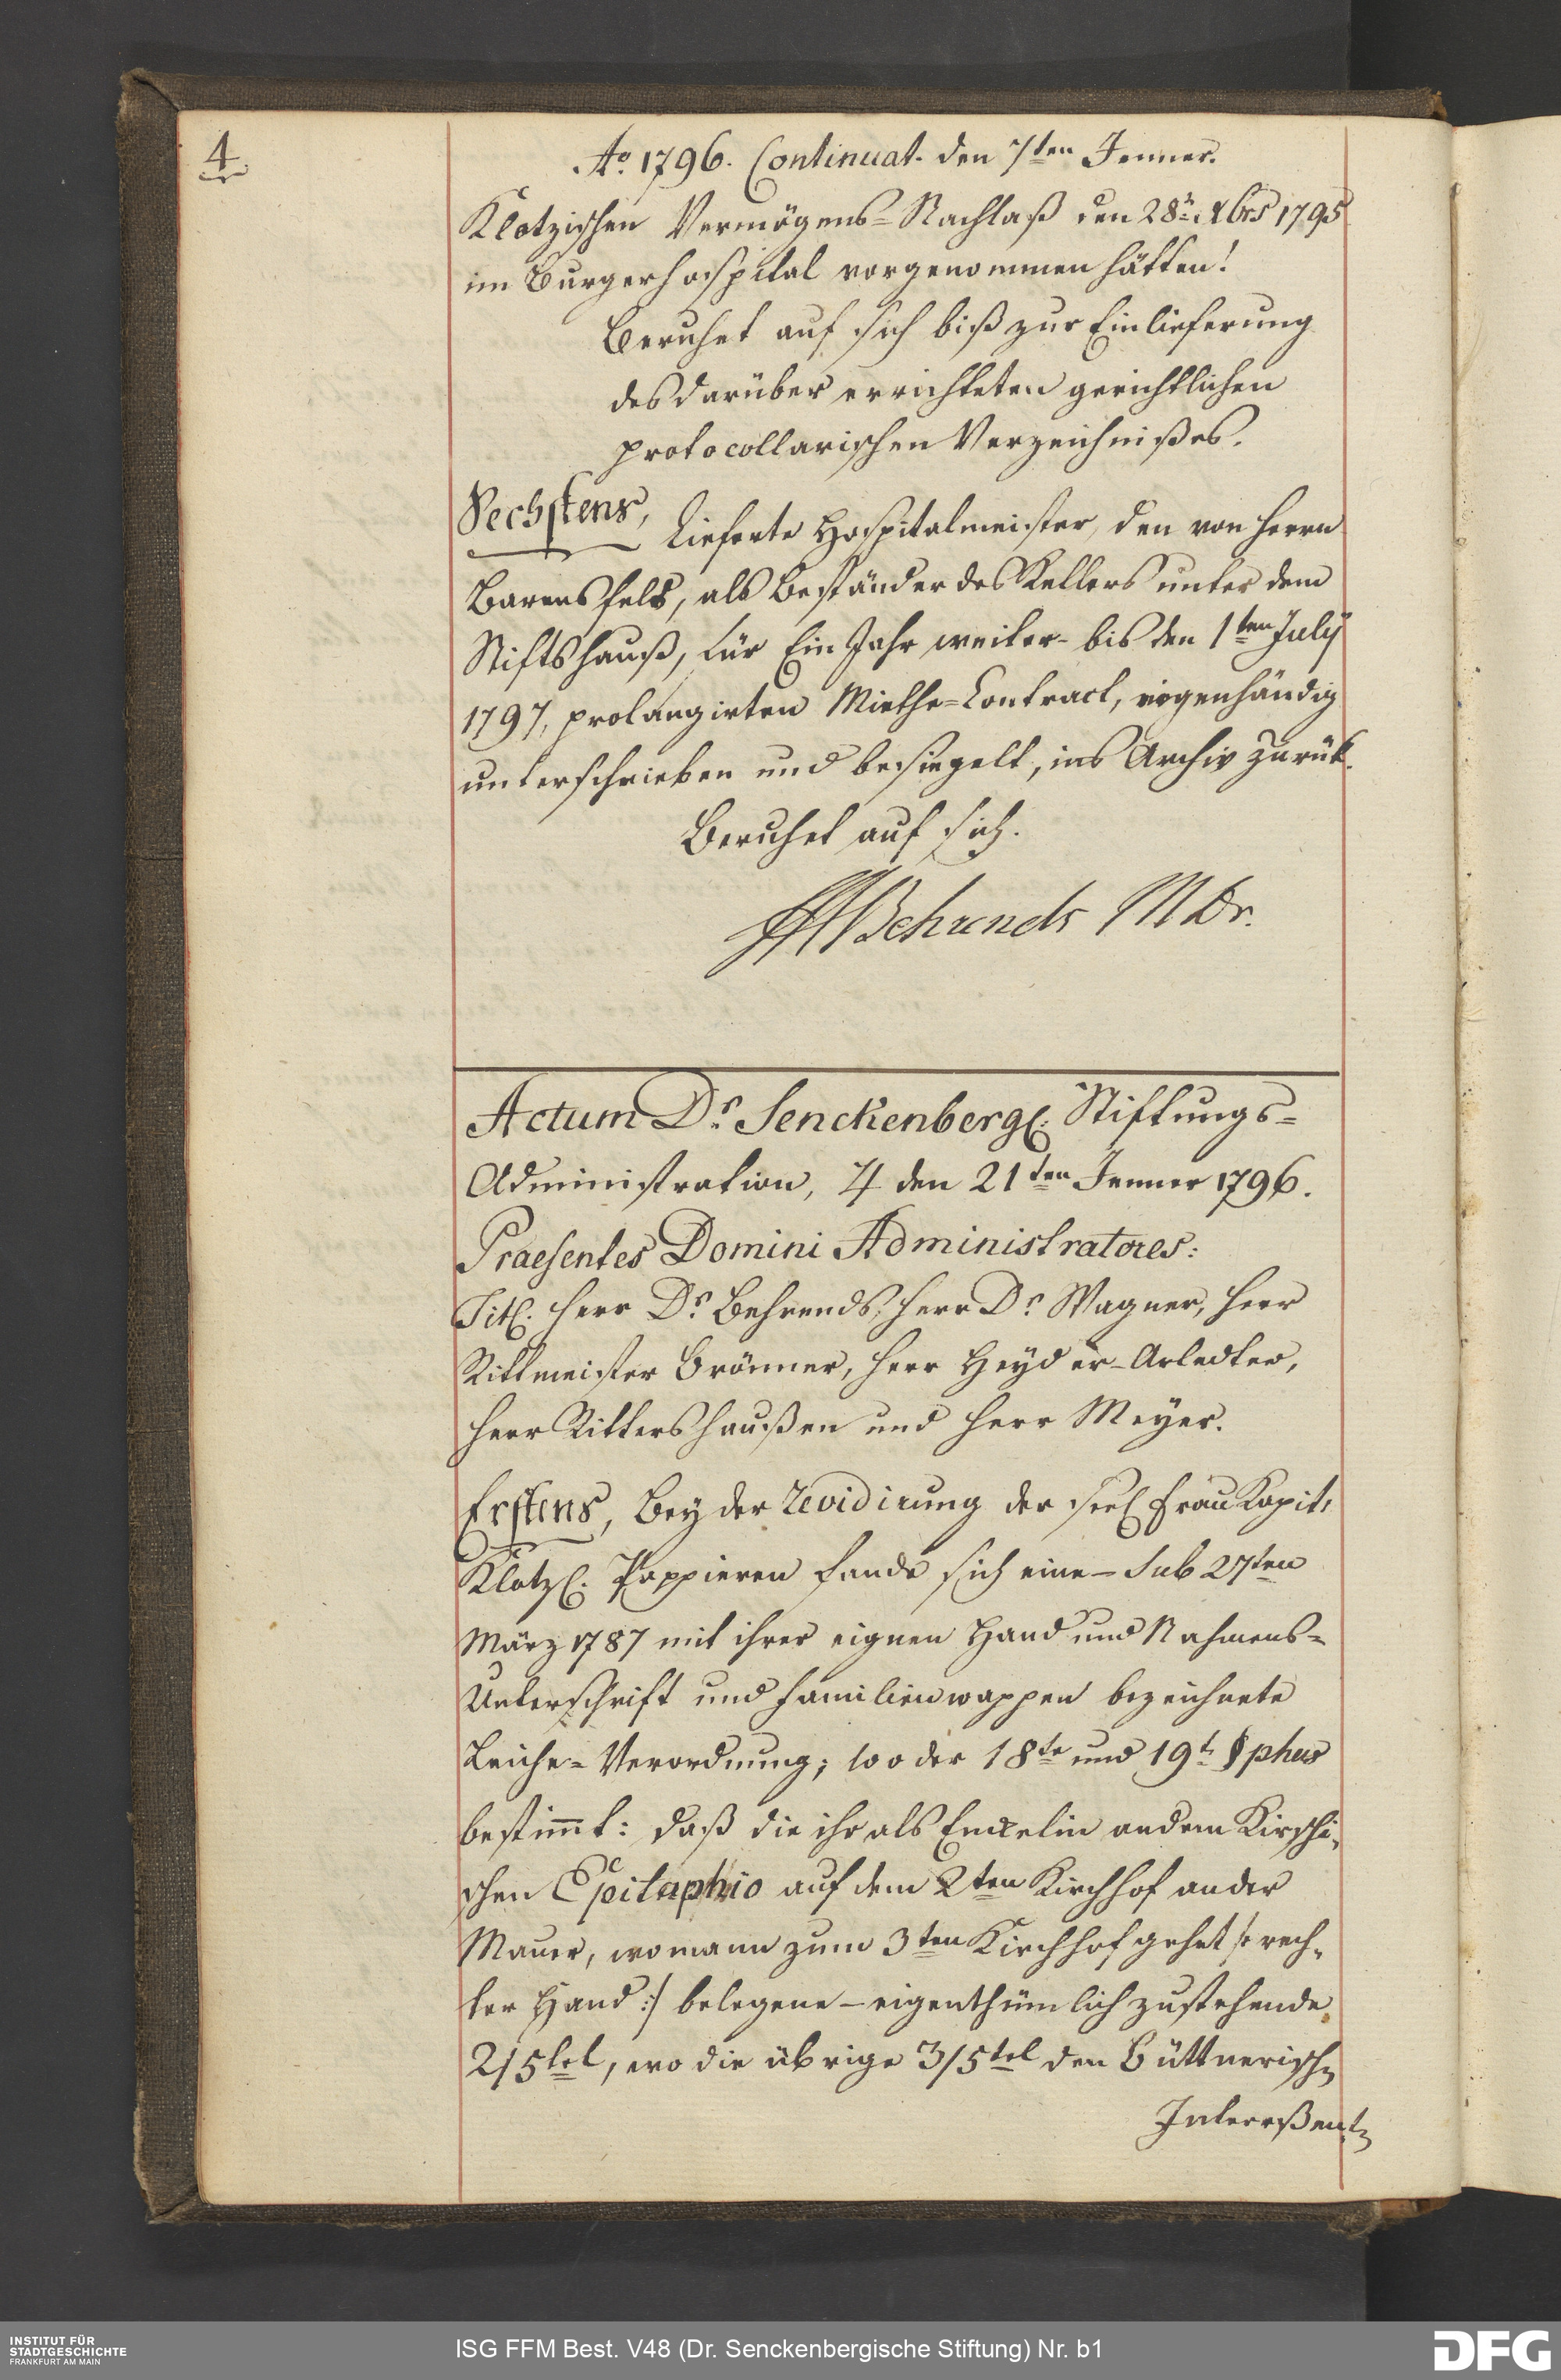 4.
Ao. 1796. Continuat. den 7ten Jenner.
Klotzischen Vermögens=Nachlaß den 28n. Xbrs 1795
im Burgerhospital vorgenommen hätten!
Beruhet auf sich biß zur Einlieferung
des darüber errichteten gerichtlichen
protocollarischen Verzeichnißes.
Sechstens, Lieferte Hospitalmeister, den von Herrn
Barensfeld, als Beständer des Kellers unter dem
Stiftshauß, für Ein Jahr weiter- bis den 1ten July
1797, prolangirten Miethe=Contract, eigenhändig
unterschrieben und besiegelt, ins Archiv zurük.
Beruhet auf sich.
Behrends MDr.
Actum Dr. Senckenbergl. Stiftungs=
Administration, ♃ den 21ten Jenner 1796.
Praesentes Domini Administratores:
Titl. Herr Dr. Behrends, Herr Dr. Wagner, Herr
Rittmeister Brönner, Herr Heyder-Arledter,
Herr Rittershaußen und Herr Meyer.
Erstens, Bey der Revidirung der seel. Frau Kapit,
Klotzl. Pappieren fande sich eine - Sub 27ten
März 1787 mit ihrer eignen Hand und Nahmens=
Unterschrift und Familienwappen bezeichnete
Leiche=Verordnung; wo der 18te und 19t. §phus
bestimt: daß die ihr als Enckelin an dem Kirschi,
schen Epitaphio auf dem 2ten Kirchhof an der
Mauer, wo mann zum 3ten Kirchhof gehet /: rech,
ter Hand :/ belegene - eigenthümlich zustehende
2/5tel, wo die übrige 3/5tel den Büttnerischn
Intereßentn
INSTITUT FÜR
STADTGESCHICHTE
FRANKFURT AM MAIN
ISG FFM Best. V48 (Dr. Senckenbergische Stiftung) Nr. b1
DFG